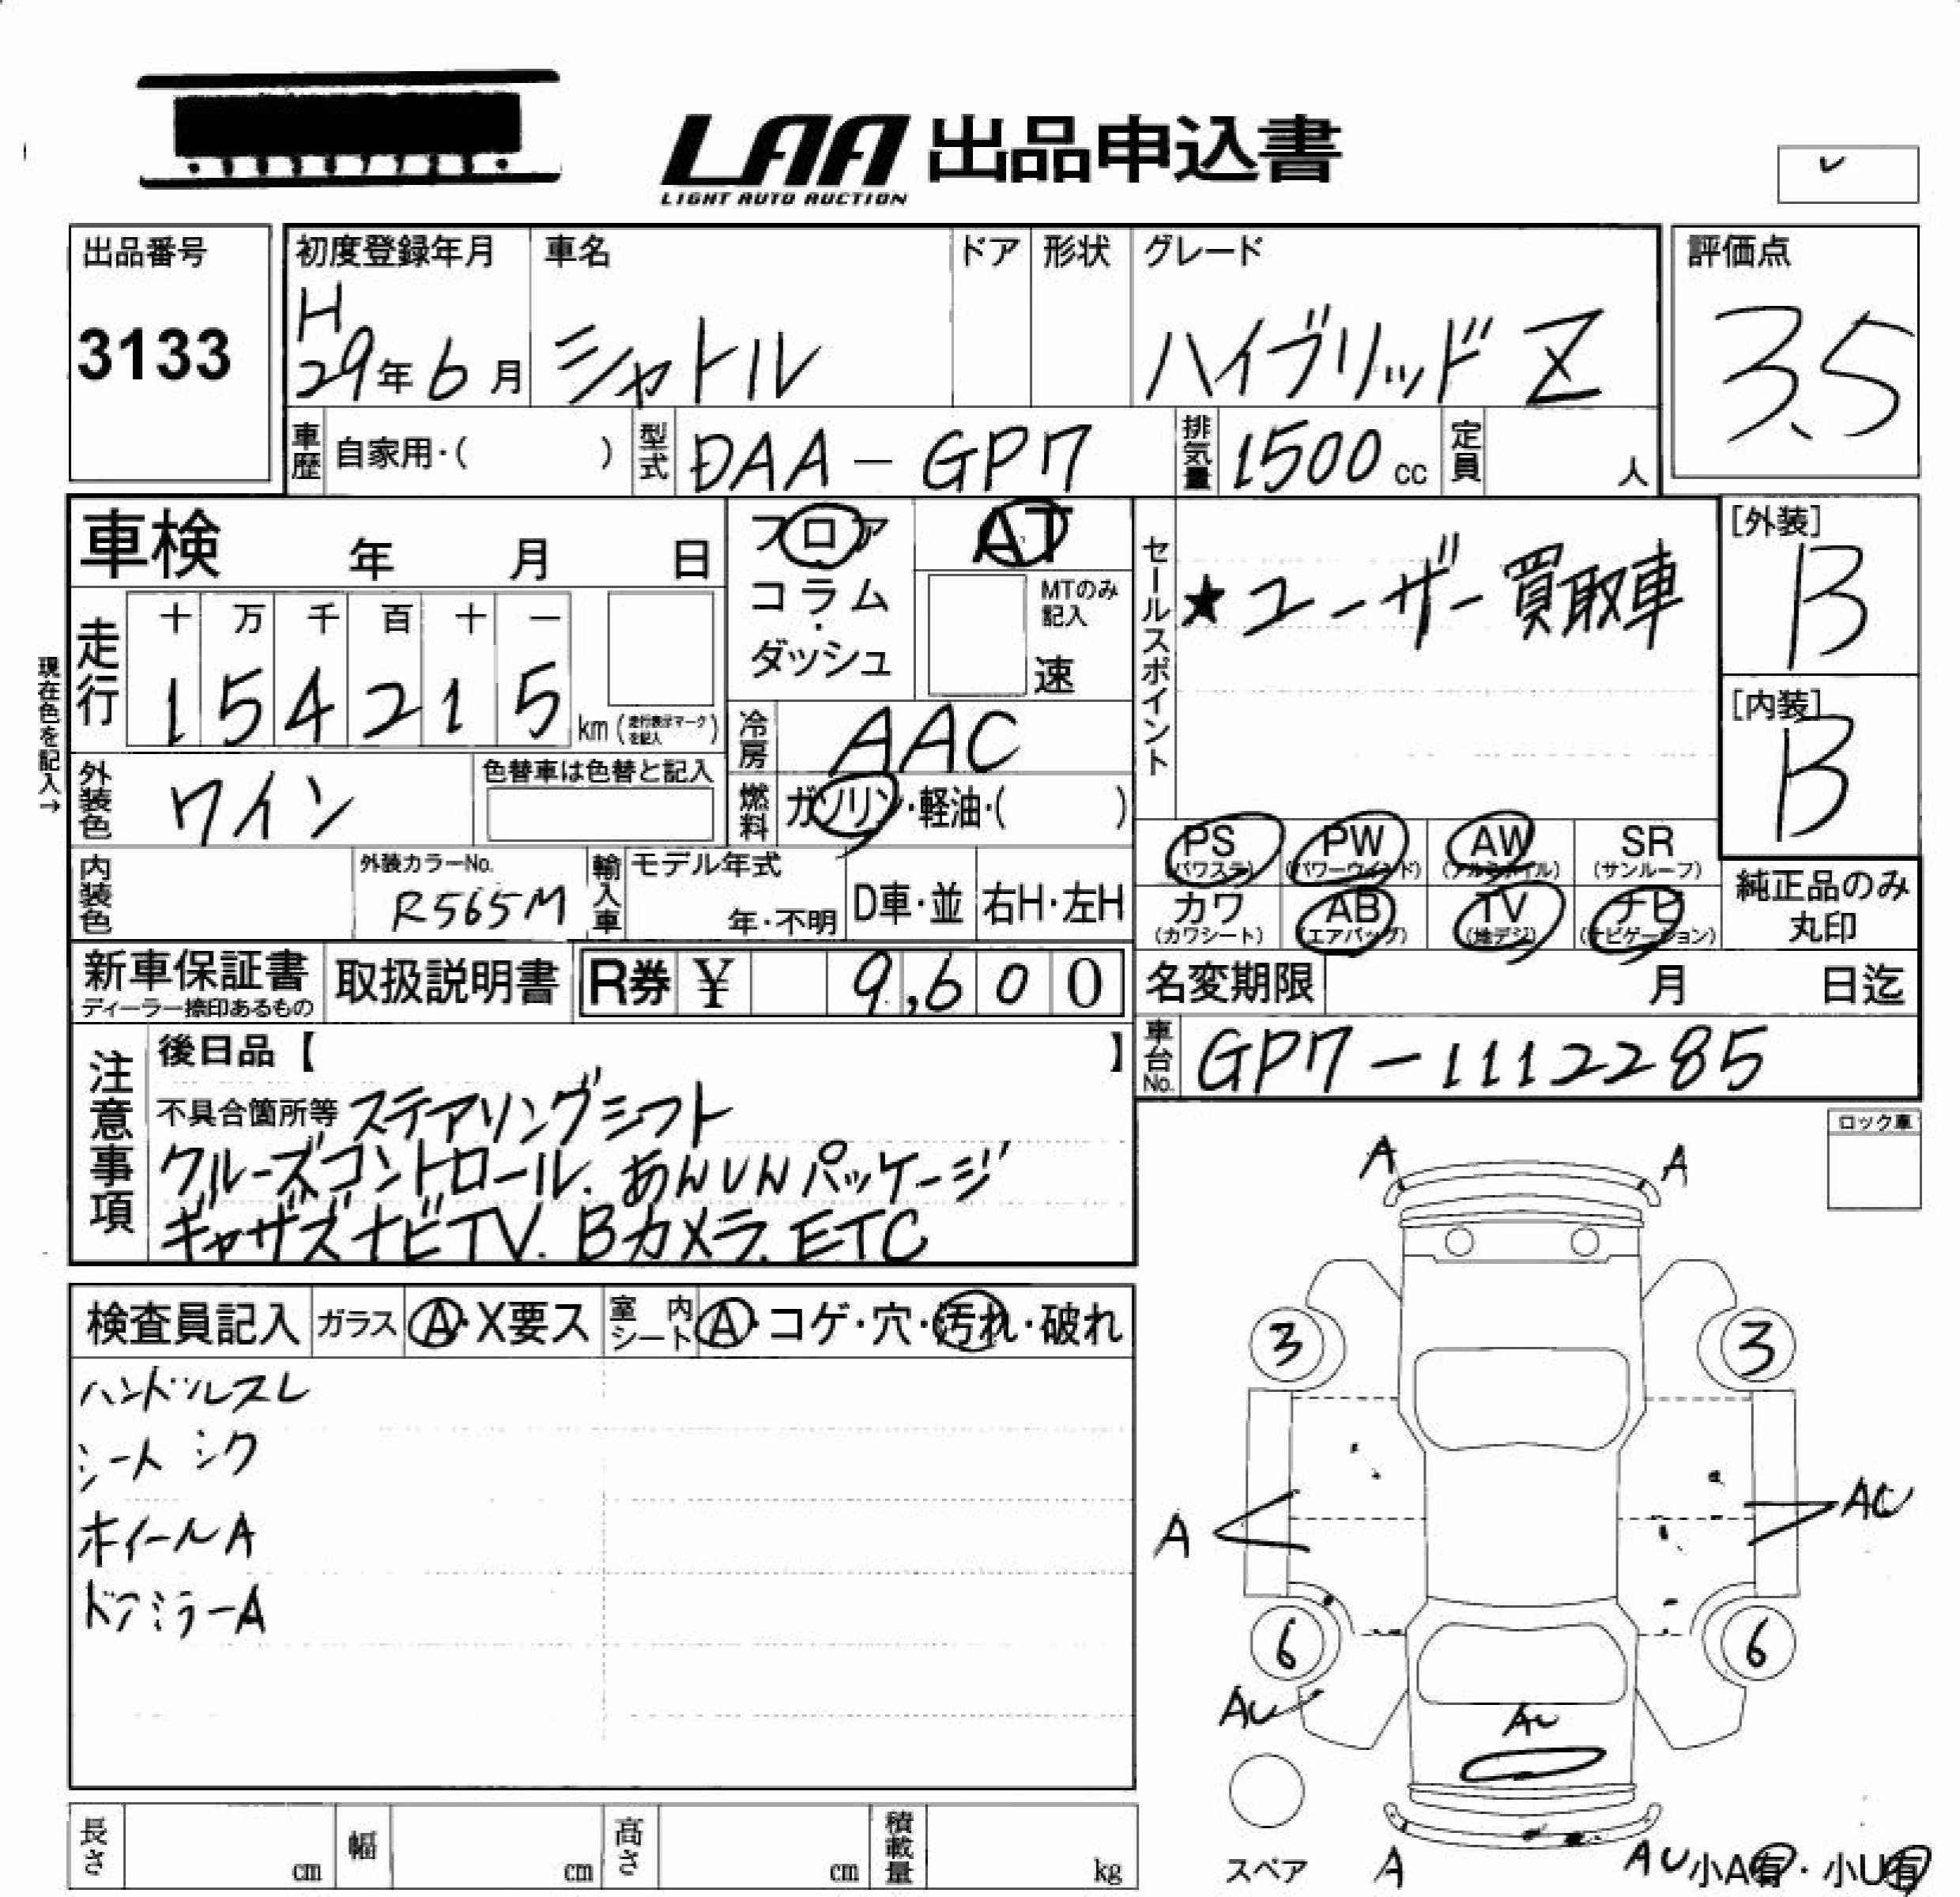 LAA 出品申込書
LIGHT AUTO AUCTION
出品番号
3133
初度登録年月
H
29年6月
車名
シャトル
ドア
形状
グレード
ハイブリッド Z
評価点
3.5
車歴 自家用・( )
型式 DAA-GP7
排気量 1500 cc
定員 人
車検 年 月 日
フロア
コラム
・
ダッシュ
AT
MTのみ記入
速
セールスポイント
★ユーザー買取車
[外装]
B
[内装]
B
現在色を記入→
走行
十 万 千 百 十 一
1 5 4 2 1 5
km (走行表示マークを記入)
冷房 AAC
外装色 ワイン
色替車は色替と記入
燃料 ガソリン・軽油・( )
内装色
外装カラーNo.
R565M
輸入車
モデル年式
年・不明
D車・並
右H・左H
PS (パワステ)
PW (パワーウインド)
AW (アルミホイル)
SR (サンルーフ)
カワ (カワシート)
AB (エアバッグ)
TV (地デジ)
ナビ (ナビゲーション)
純正品のみ
丸印
新車保証書
ディーラー捺印あるもの
取扱説明書
R券 ¥ 9,600
名変期限 月 日迄
車台No. GP7-1112285
注意事項
後日品【 】
不具合箇所等 ステアリングシフト
クルーズコントロール. あんしんパッケージ
ギャザズナビTV. Bカメラ. ETC
ロック車
検査員記入
ガラス Ⓐ・X要ス
室内シート Ⓐ・コゲ・穴・汚れ・破れ
ハンドルスレ
シート シワ
ホイールA
ドアミラーA
A A
3 3
A AU
6 6
AU
AU
スペア
A
AU
小A有・小U有
長さ cm
幅 cm
高さ cm
積載量 kg